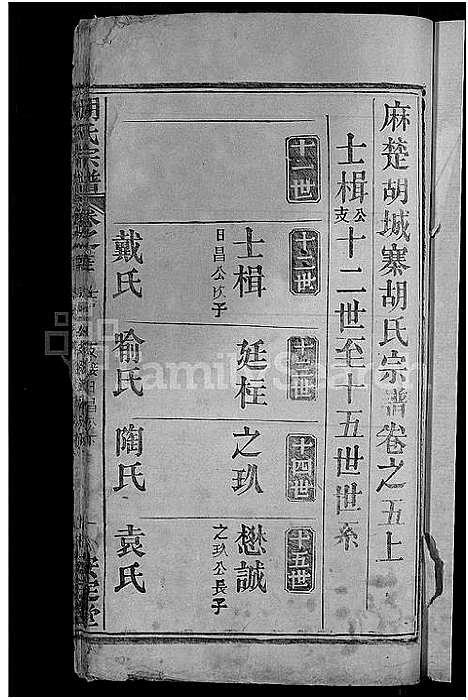 麻楚胡城寨胡氏宗譜卷之五上
士楫公支十二世至十五世世系
十一世
十二世
士楫
日昌公次子
戴氏
十三世
廷柱
喻氏
十四世
之玖
陶氏
十五世
懋誠
之玖公長子
袁氏
胡氏宗譜
安定堂
FamilySearch